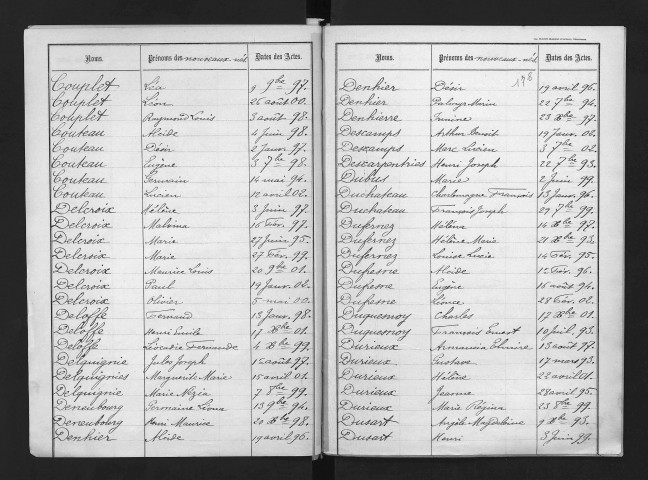 Noms. Prénoms des nouveaux-nés Dates des Actes.
Couplet Léa 9 9bre 97.
Couplet Léon 26 août 00.
Couplet Raymond Louis 3 août 98.
Couteau Alcide 4 juin 98.
Couteau Désir 2 Janv. 97.
Couteau Eugène 3 7bre 98.
Couteau Germain 14 mai 94.
Couteau Lucien 12 avril 02.
Delcroix Hélène 3 Juin 97.
Delcroix Malvina 16 Fév. 97.
Delcroix Marie 27 Juin 95.
Delcroix Marie 27 Fév. 99.
Delcroix Maurice Louis 20 9bre 01.
Delcroix Paul 19 Janv. 02.
Delcroix Olivier 5 mai 00.
Deloffe Fernand 13 Janv. 98.
Deloffe Henri Emile 11 Xbre 01.
Deloffe Léocadie Fernande 4 Xbre 99.
Delquignie Jules Joseph 15 août 97.
Delquignies Marguerite Marie 15 avril 01.
Delquignie Marie 7 8bre 99.
Deneubourg Germaine 13 9bre 94.
Deneubourg Henri Maurice 20 Xbre 98.
Denhier Alcide 19 avril 96.
Noms. Prénoms des nouveaux-nés Dates des Actes.
198
Denhier Désir 19 avril 96.
Denhier Marie 22 7bre 94.
Denhierre Irmine 23 Xbre 97.
Descamps Arthur Benoit 19 Janv. 02.
Descamps Marc Lucien 3 7bre 02.
Descarpentries Henri Joseph 22 7bre 93.
Dubus Marie 2 Juin 99.
Duchateau Charlemagne François 13 Janv. 96.
Duchateau François Joseph 29 7bre 99.
Dufernez Hélène 14 Xbre 97.
Dufernez Hélène Marie 31 Xbre 93.
Dufernez Louise Lucie 14 Fév. 95.
Dufresne Alcide 12 Fév. 96.
Dufresne Eugène 16 août 94.
Dufresne Léonce 28 Fév. 02.
Duquesnoy Charles 17 Xbre 01.
Duquesnoy François Ernest 10 Juil. 93.
Durieux Armania Elmire 13 août 97.
Durieux Gustave 17 mars 93.
Durieux Hélène 22 août 01.
Durieux Jeanne 28 avril 95.
Durieux Marie Régina 23 8bre 99.
Dusart Angèle Magdeleine 9 Xbre 95.
Dusart Henri 3 Juin 97.